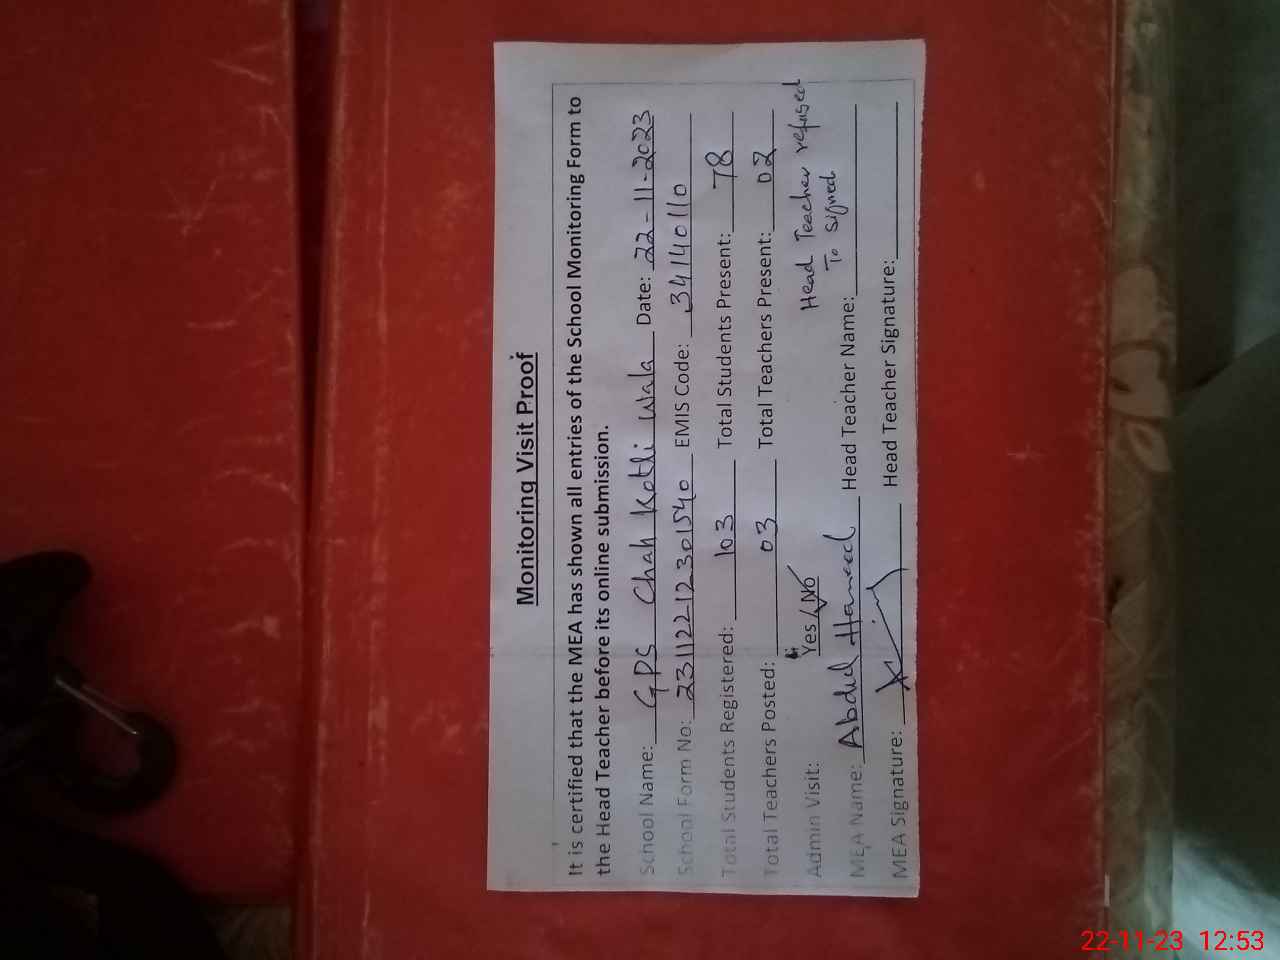 Monitoring Visit Proof
It is certified that the MEA has shown all entries of the School Monitoring Form to
the Head Teacher before its online submission.
School Name: GPS Chah Kothi Wala Date: 22-11-2023
School Form No: 23112212301540 EMIS Code: 34140110
Total Students Registered: 103 Total Students Present: 78
Total Teachers Posted: 03 Total Teachers Present: 02
Admin Visit: Yes / No Head Teacher refused
To signed
MEA Name: Abdul Hameed Head Teacher Name:
MEA Signature: Head Teacher Signature:
22-11-23 12:53